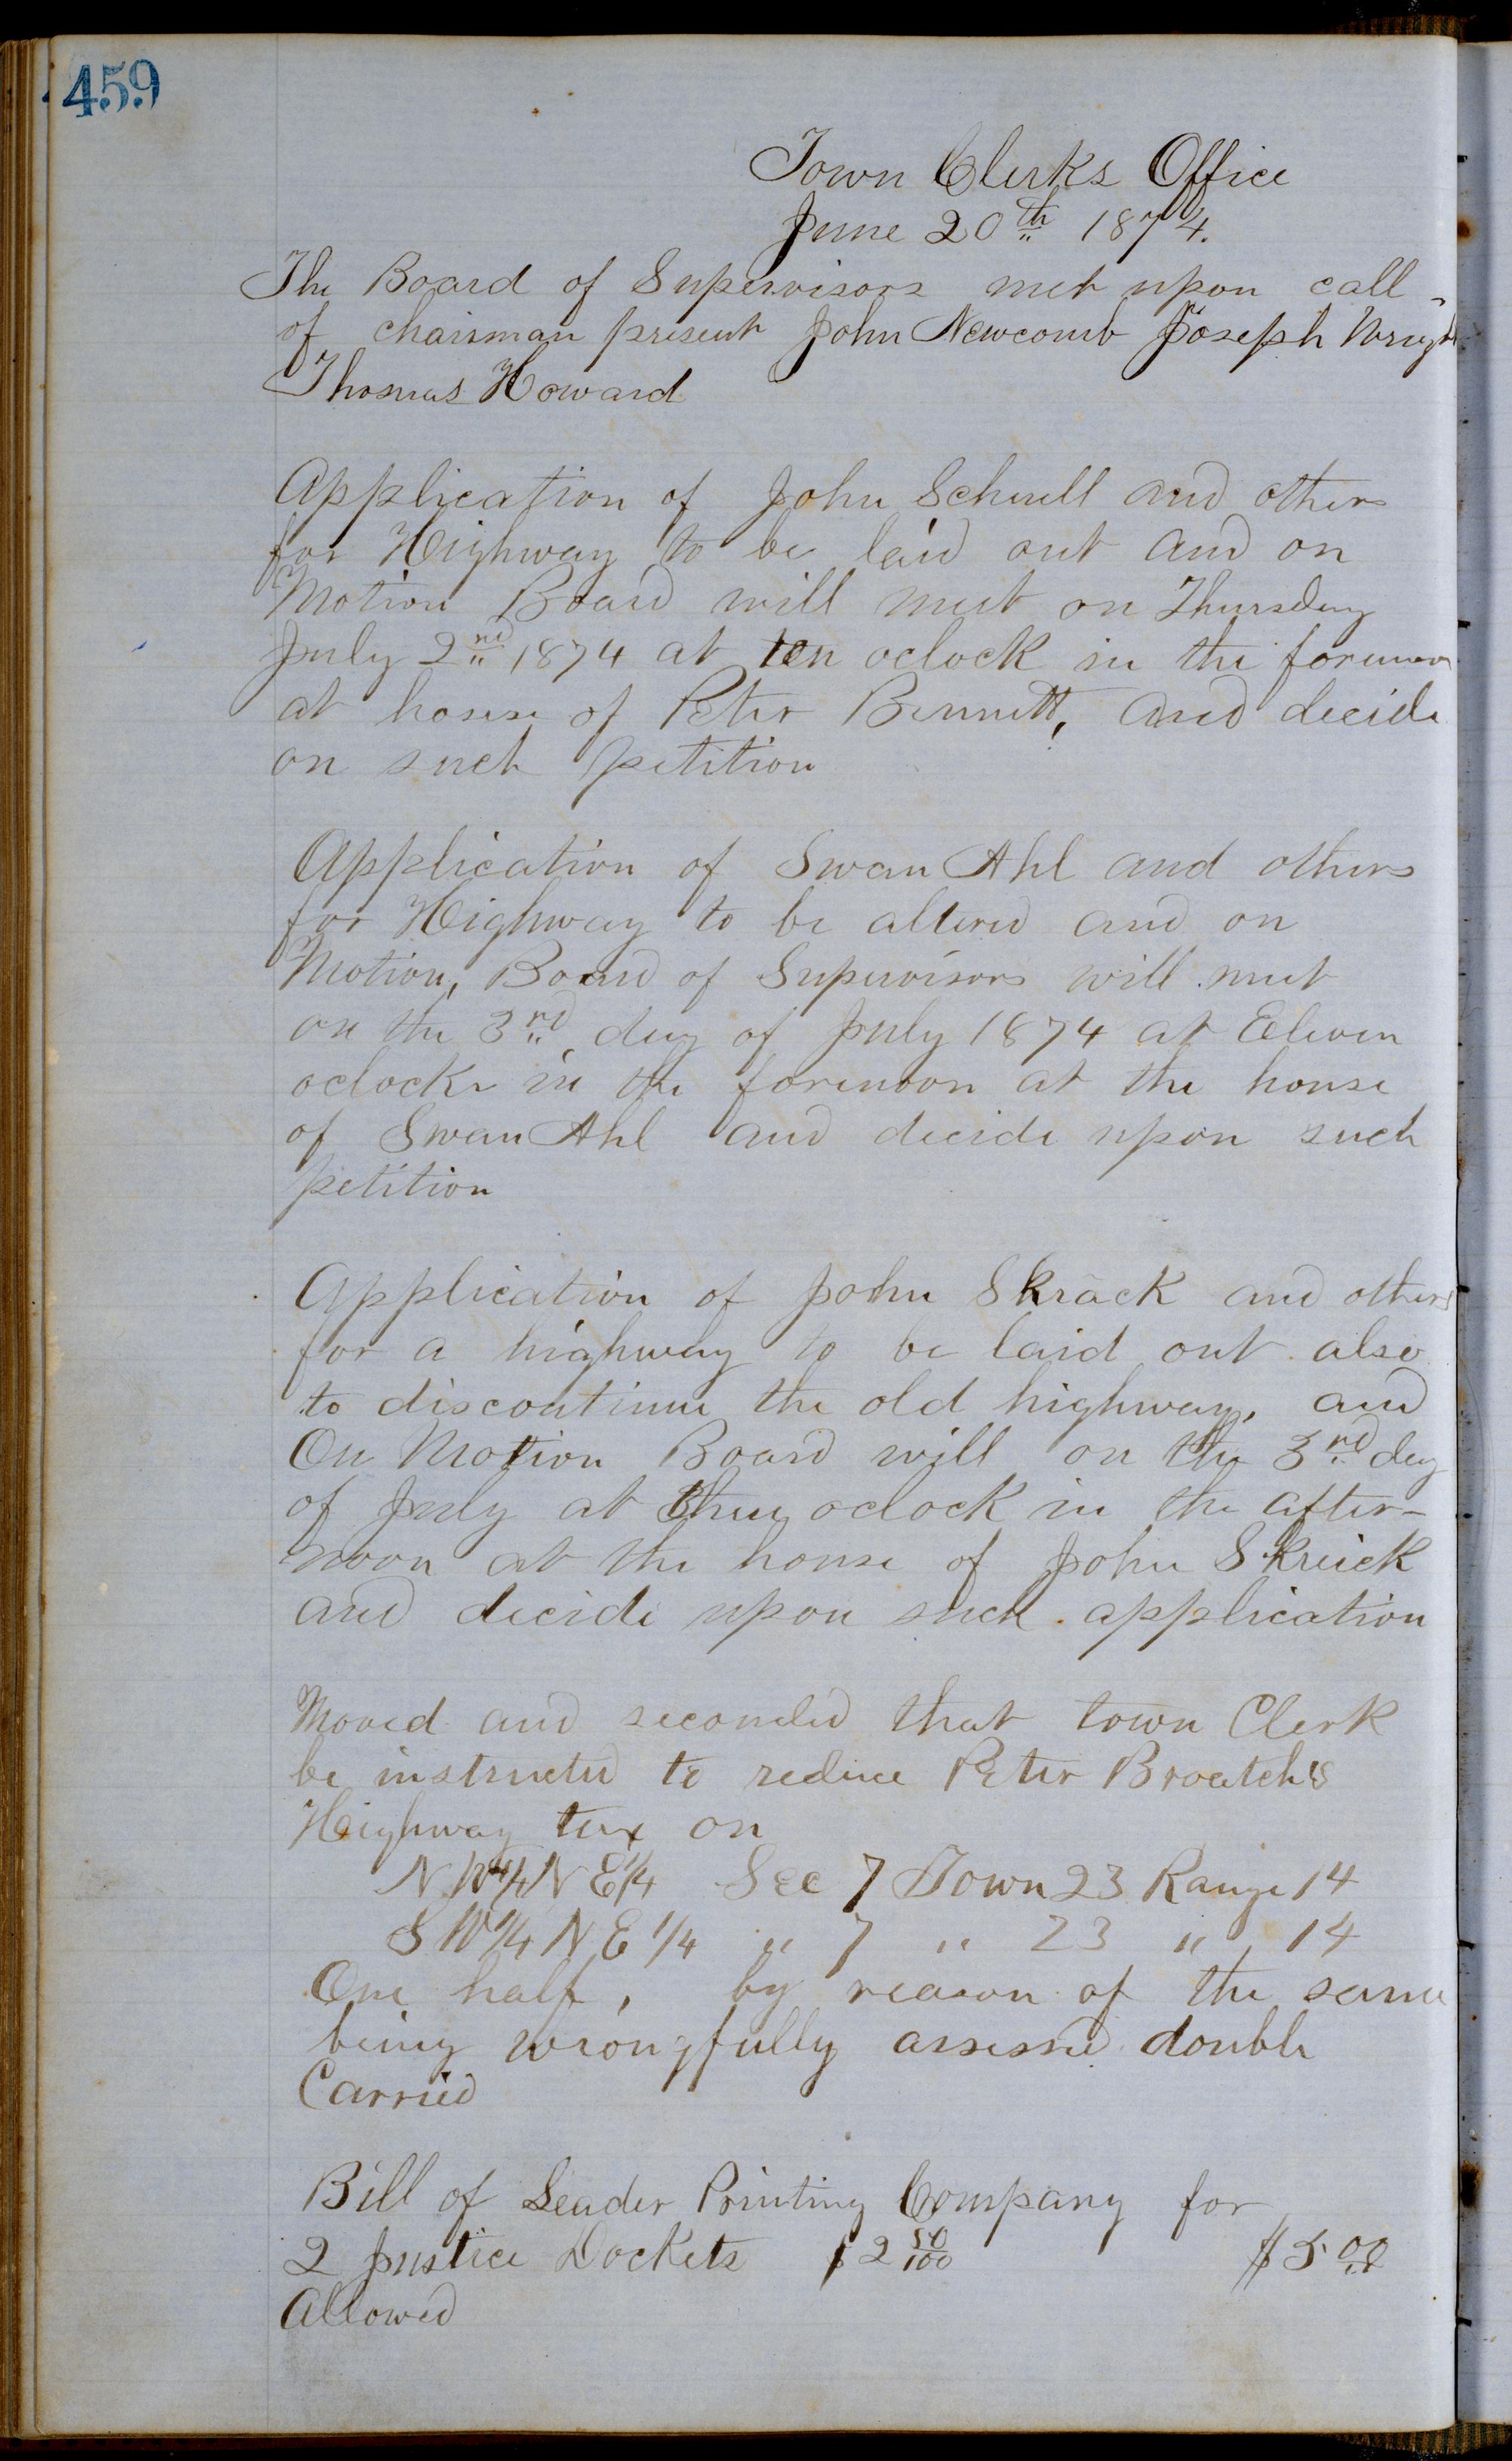 459
Town Clerks Office
June 20th 1874.
The Board of Supervisors met upon call
of chairman present John Newcomb Joseph Wright
Thomas Howard
Application of John Schull and others
for Highway to be laid out and on
Motion Board will meet on Thursday
July 2nd 1874 at ten oclock in the forenoon
at house of Peter Bennett, and decide
on such petition
Application of Swan Ahl and others
for Highway to be altered and on
Motion, Board of Supervisors will meet
on the 3rd day of July 1874 at Eleven
oclock in the forenoon at the house
of Swan Ahl and decide upon such
petition
Application of John Skrack and others
for a highway to be laid out also
to discontinue the old highway, and
On Motion Board will on the 3rd day
of July at three oclock in the after-
noon at the house of John Skrick
and decide upon such application
Moved and seconded that town Clerk
be instructed to reduce Peter Broatchs
Highway tax on
N W 1/4 N E 1/4 Sec 7 Town 23 Range 14
S W 1/4 N E 1/4 " 7 " 23 " 14
One half, by reason of the same
being wrongfully assessed double
Carried
Bill of Leader Printing Company for
2 Justice Dockets $2 50/100 $5.00
Allowed